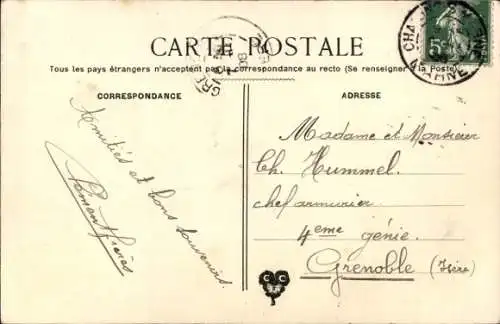 CARTE POSTALE
Tous les pays étrangers n'acceptent pas la correspondance au recto (Se renseigner à la Poste)
CORRESPONDANCE
ADRESSE
Amitiés et bons souvenirs
Madame et Monsieur
Ch. Hummel
chef armurier
4eme génie.
Grenoble (Isère)